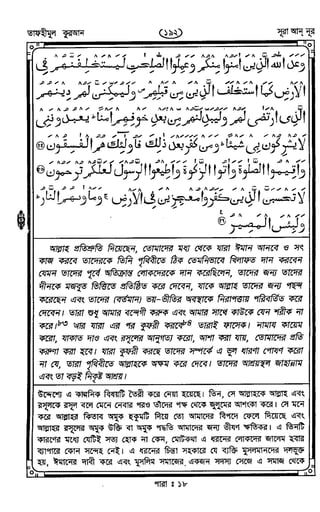 তাফহীমুল কুরআন
(১৯২)
সূরা আন্ নূর
وَعَدَ اللّٰهُ الَّذِيْنَ اٰمَنُوْا مِنْكُمْ وَعَمِلُوا الصّٰلِحٰتِ لَيَسْتَخْلِفَنَّهُمْ فِى
الْاَرْضِ كَمَا اسْتَخْلَفَ الَّذِيْنَ مِنْ قَبْلِهِمْ وَلَيُمَكِّنَنَّ لَهُمْ دِيْنَهُمُ
الَّذِى ارْتَضٰى لَهُمْ وَلَيُبَدِّلَنَّهُمْ مِّنْۢ بَعْدِ خَوْفِهِمْ اَمْنًا يَعْبُدُوْنَنِىْ
لَا يُشْرِكُوْنَ بِىْ شَيْئًا وَمَنْ كَفَرَ بَعْدَ ذٰلِكَ فَاُولٰٓئِكَ هُمُ الْفٰسِقُوْنَ
وَاَقِيْمُوا الصَّلٰوةَ وَاٰتُوا الزَّكٰوةَ وَاَطِيْعُوا الرَّسُوْلَ لَعَلَّكُمْ تُرْحَمُوْنَ
لَا تَحْسَبَنَّ الَّذِيْنَ كَفَرُوْا مُعْجِزِيْنَ فِى الْاَرْضِ وَمَاْوٰىهُمُ النَّارُ
وَلَبِئْسَ الْمَصِيْرُ
আল্লাহ প্রতিশ্রুতি দিয়েছেন, তোমাদের মধ্য থেকে যারা ঈমান আনবে ও সৎ
কাজ করবে তাদেরকে তিনি পৃথিবীতে ঠিক তেমনিভাবে খিলাফত দান করবেন
যেমন তাদের পূর্বে অতিক্রান্ত লোকদেরকে দান করেছিলেন, তাদের জন্য তাদের
দীনকে মজবুত ভিত্তিতে প্রতিষ্ঠিত করে দেবেন, যাকে আল্লাহ তাদের জন্য পছন্দ
করেছেন এবং তাদের (বর্তমান) ভয়-ভীতির অবস্থাকে নিরাপত্তায় পরিবর্তিত করে
দেবেন। তারা শুধু আমার বন্দেগী করুক এবং আমার সাথে কাউকে যেন শরীক না
করে।৮৩ আর যারা এর পর কুফরী করবে৮৪ তারাই ফাসেক। নামায কায়েম
করো, যাকাত দাও এবং রসূলের আনুগত্য করো, আশা করা যায়, তোমাদের প্রতি
করুণা করা হবে। যারা কুফরী করছে তাদের সম্পর্কে এ ভুল ধারণা পোষণ করো
না যে, তারা পৃথিবীতে আল্লাহকে অক্ষম করে দেবে। তাদের আশ্রয়স্থল জাহান্নাম
এবং তা বড়ই নিকৃষ্ট আশ্রয়।
উদ্দেশ্যে এ কাল্পনিক বিষয়টি তৈরী করে নেয়া হয়েছে। তিন, সে আল্লাহকে আল্লাহ এবং
রসূলকে রসূল বলে মেনে নেবার পরও তাঁদের পক্ষ থেকে জুলুমের আশংকা করে। সে মনে
করে আল্লাহর কিতাব অমুক হুকুমটি দিয়ে তো আমাদের বিপদে ফেলে দিয়েছে এবং
আল্লাহর রসূলের অমুক উক্তি বা অমুক পদ্ধতি আমাদের জন্য ভীষণ ক্ষতিকর। এ তিনটি
কারণের মধ্যে যেটিই সত্য হোক না কেন, মোটকথা এ ধরনের লোকদের জালেম হবার
ব্যাপারে কোন সন্দেহ নেই। এ ধরনের চিন্তা সহকারে যে ব্যক্তি মুসলমানদের দলভুক্ত
হয়, ঈমানের দাবী করে এবং মুসলিম সমাজের একজন সদস্য সেজে এ সমাজ থেকে
পারা : ১৮